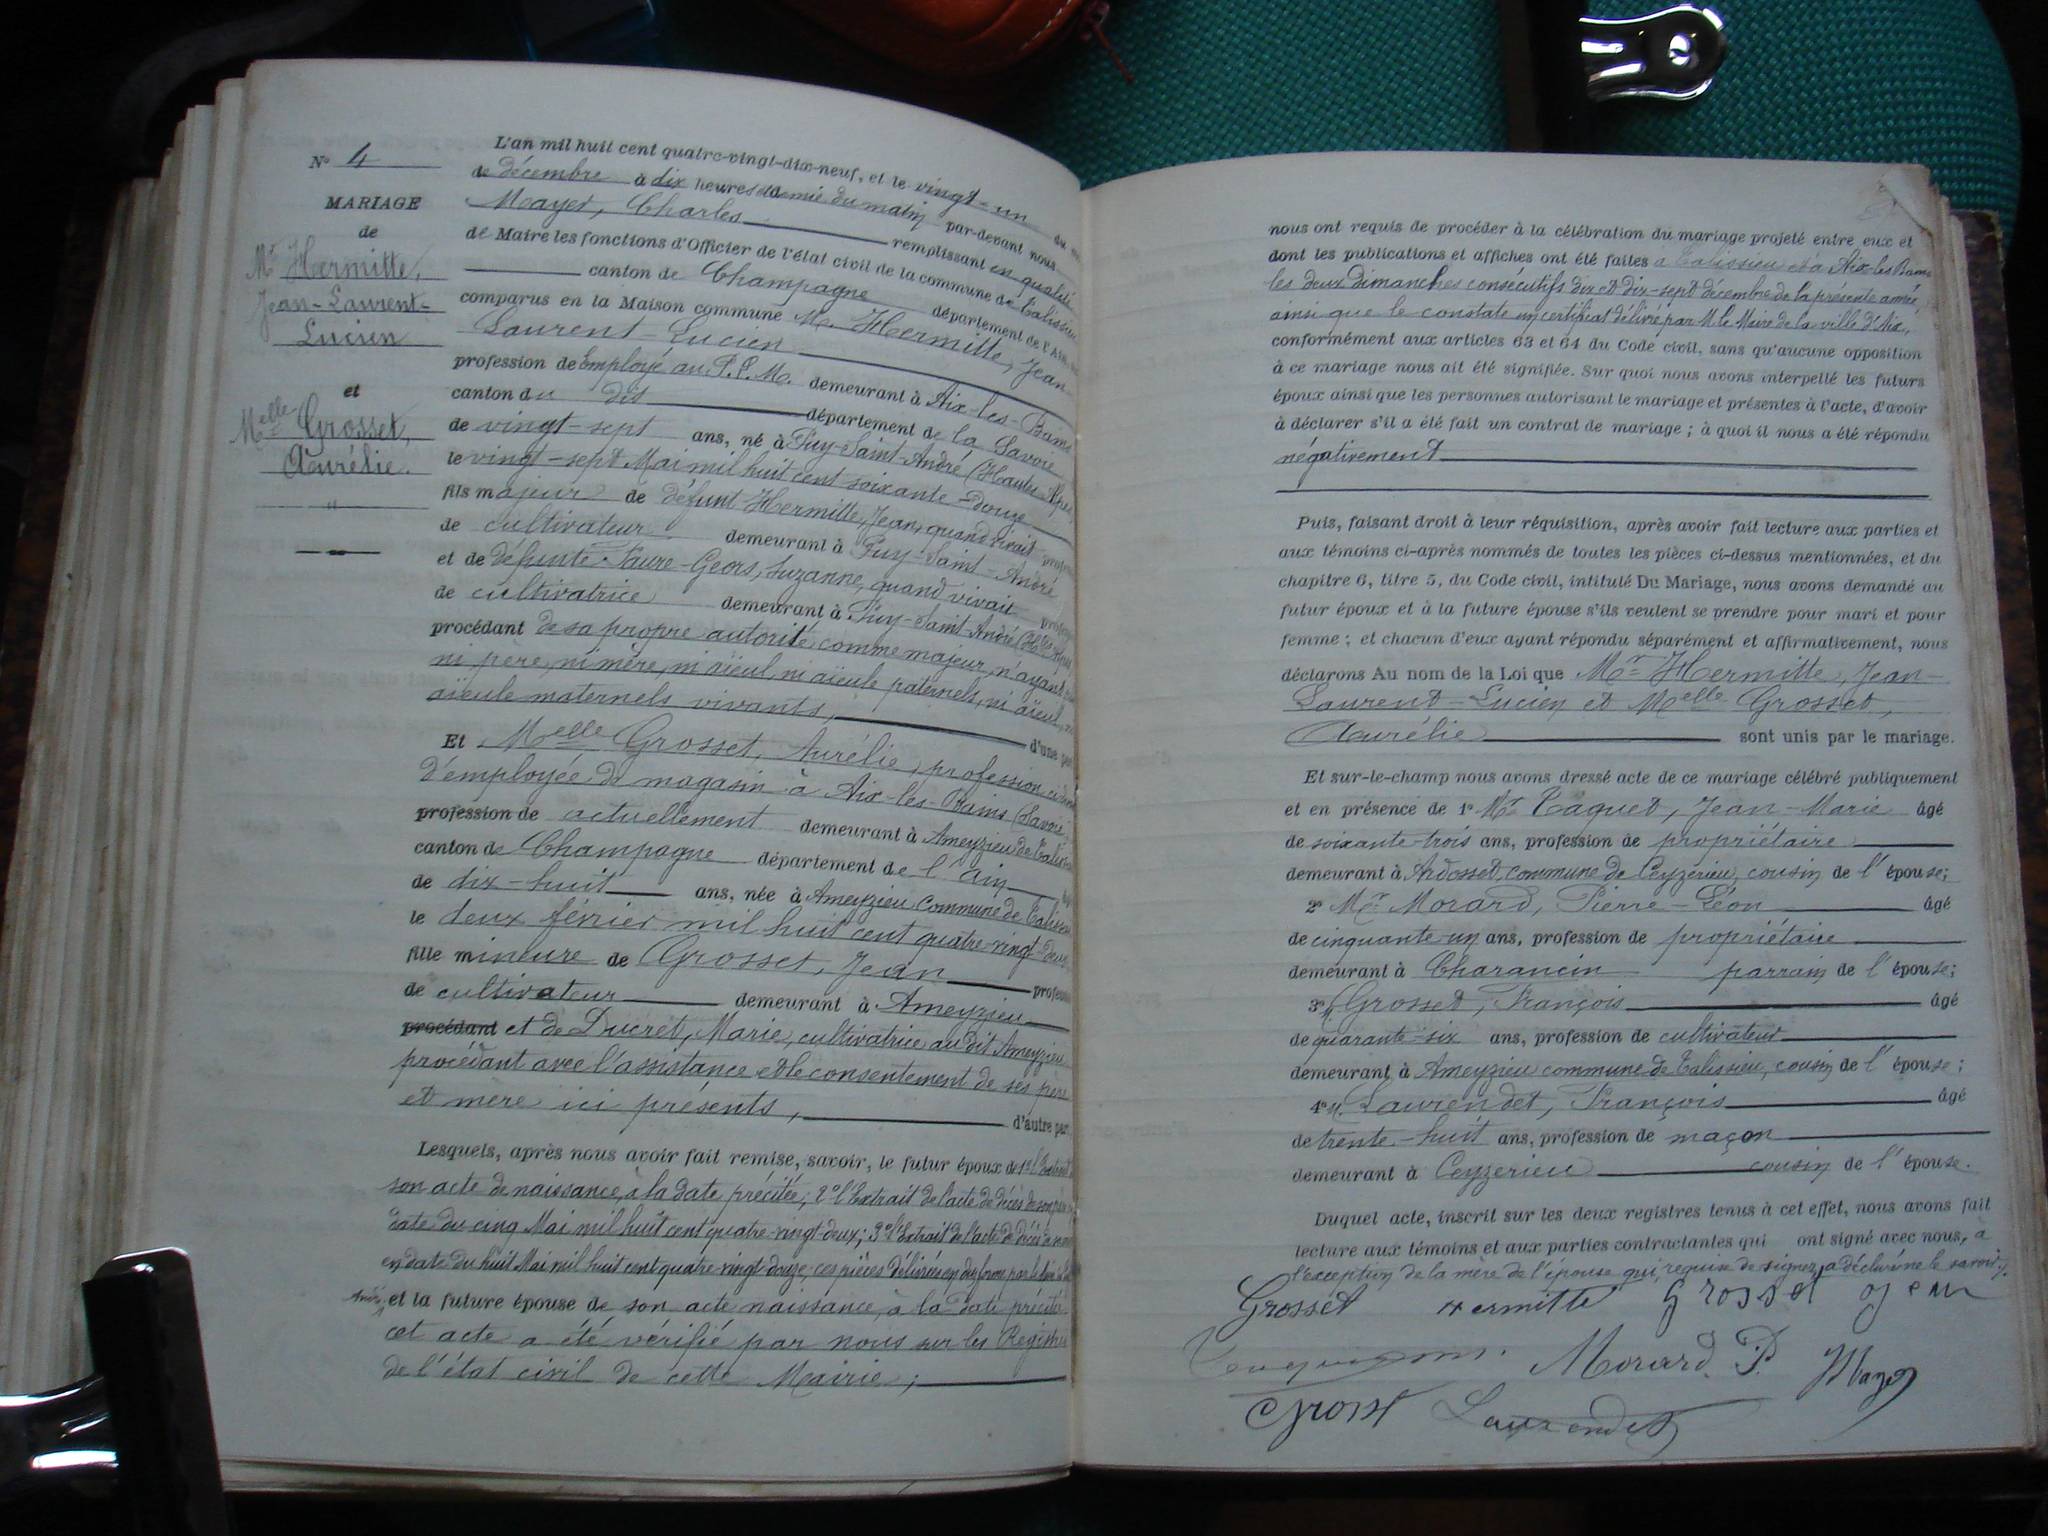 N° 4
MARIAGE
de
Mr Hermitte,
Jean-Laurent-
Lucien
et
Melle Grosset,
Aurélie.
"
L'an mil huit cent quatre-vingt-dix-neuf, et le vingt-un du
de décembre à dix heures demie du matin par-devant nous
Mayet, Charles remplissant en qualité
de Maire les fonctions d'Officier de l'état civil de la commune de Talissieu
canton de Champagne département de l'Ain
comparus en la Maison commune M. Hermitte, Jean-
Laurent-Lucien
profession de Employé au P.L.M. demeurant à Aix-les-Bains
canton du dit département de la Savoie
de vingt-sept ans, né à Puy-Saint-André (Hautes Alpes
le vingt-sept Mai mil huit cent soixante-douze
fils majeur de défunt Hermitte, Jean, quand vivait
de cultivateur demeurant à Puy-Saint-André
et de défunte Faure-Geors, Suzanne, quand vivait
de cultivatrice demeurant à Puy-Saint-André (Htes Alpes
procédant de sa propre autorité comme majeur, n'ayant
ni père, ni mère, ni aïeul, ni aïeule paternels, ni aïeul,
aïeule maternels vivants, d'une part
Et Melle Grosset, Aurélie, profession
d'employée de magasin à Aix-les-Bains (Savoie)
profession de actuellement demeurant à Ameyzieu de Talissieu
canton de Champagne département de l'ain
de dix-huit ans, née à Ameyzieu commune de Talissieu
le deux février mil huit cent quatre-vingt-deux
fille mineure de Grosset, Jean profession
de cultivateur demeurant à Ameyzieu
procédant et de Ducret, Marie, cultivatrice au dit Ameyzieu
procédant avec l'assistance et le consentement de ses père
et mère ici présents, d'autre part.
Lesquels, après nous avoir fait remise, savoir, le futur époux de 1° l'Extrait
son acte de naissance, à la date précitée; 2° l'Extrait de l'acte de décès de son père
date du cinq Mai mil huit cent quatre-vingt-deux; 3° l'Extrait de l'acte de décès de
en date du huit Mai mil huit cent quatre-vingt-douze, ces pièces délivrées en due forme par
André, et la future épouse de son acte naissance, à la date précitée
cet acte a été vérifié par nous sur les Registres
de l'état civil de cette Mairie;
nous ont requis de procéder à la célébration du mariage projeté entre eux et
dont les publications et affiches ont été faites à Talissieu et à Aix-les-Bains
les deux dimanches consécutifs dix et dix-sept décembre de la présente année
ainsi que le constate un certificat délivré par M. le Maire de la ville d'Aix,
conformément aux articles 63 et 64 du Code civil, sans qu'aucune opposition
à ce mariage nous ait été signifiée. Sur quoi nous avons interpellé les futurs
époux ainsi que les personnes autorisant le mariage et présentes à l'acte, d'avoir
à déclarer s'il a été fait un contrat de mariage; à quoi il nous a été répondu
négativement
Puis, faisant droit à leur réquisition, après avoir fait lecture aux parties et
aux témoins ci-après nommés de toutes les pièces ci-dessus mentionnées, et du
chapitre 6, titre 5, du Code civil, intitulé Du Mariage, nous avons demandé au
futur époux et à la future épouse s'ils veulent se prendre pour mari et pour
femme; et chacun d'eux ayant répondu séparément et affirmativement, nous
déclarons Au nom de la Loi que Mr Hermitte, Jean-
Laurent-Lucien et Melle Grosset,
Aurélie sont unis par le mariage.
Et sur-le-champ nous avons dressé acte de ce mariage célébré publiquement
et en présence de 1° Mr Taquet, Jean-Marie âgé
de soixante-trois ans, profession de propriétaire
demeurant à Ardosset, commune de Ceyzérieu, cousin de l'épouse;
2° Mr Morard, Pierre-Léon âgé
de cinquante-un ans, profession de propriétaire
demeurant à Charancin parrain de l'épouse;
3° Grosset, François âgé
de quarante-six ans, profession de cultivateur
demeurant à Ameyzieu commune de Talissieu, cousin de l'épouse;
4° Laurendet, François âgé
de trente-huit ans, profession de maçon
demeurant à Ceyzerieu cousin de l'épouse.
Duquel acte, inscrit sur les deux registres tenus à cet effet, nous avons fait
lecture aux témoins et aux parties contractantes qui ont signé avec nous, à
l'exception de la mère de l'épouse qui, requise de signer, a déclaré ne le savoir.
Grosset Hermitte Grosset Jean
Morard P. Mayet
Grosset Laurendet